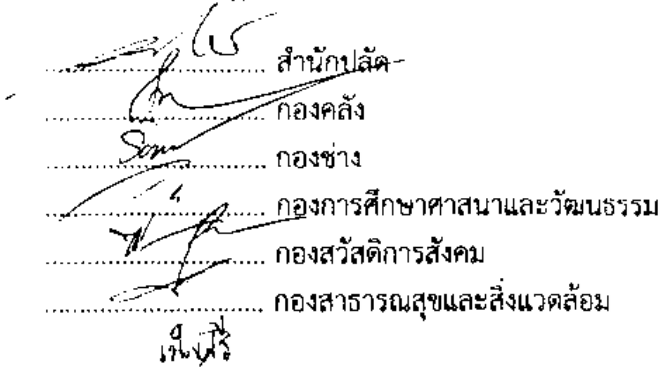 .................... สำนักปลัด
.................... กองคลัง
.................... กองช่าง
.................... กองการศึกษาศาสนาและวัฒนธรรม
.................... กองสวัสดิการสังคม
.................... กองสาธารณสุขและสิ่งแวดล้อม